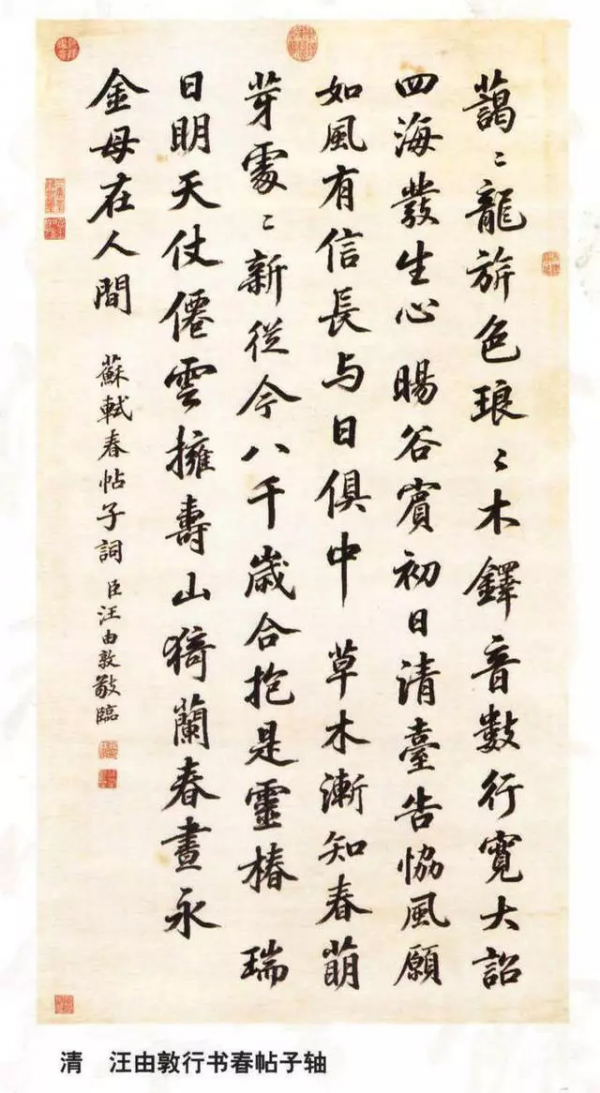 藹〻龍旂色琅〻木鐸音數行寬大詔
四海發生心暘谷賓初日清臺告協風願
如風有信長与日俱中 草木漸知春萠
芽處〻新從今八千歲合抱是靈椿 瑞
日明天仗僊雲擁壽山猗蘭春晝永
金母在人間
蘇軾春帖子詞 臣汪由敦敬臨
清 汪由敦行书春帖子轴